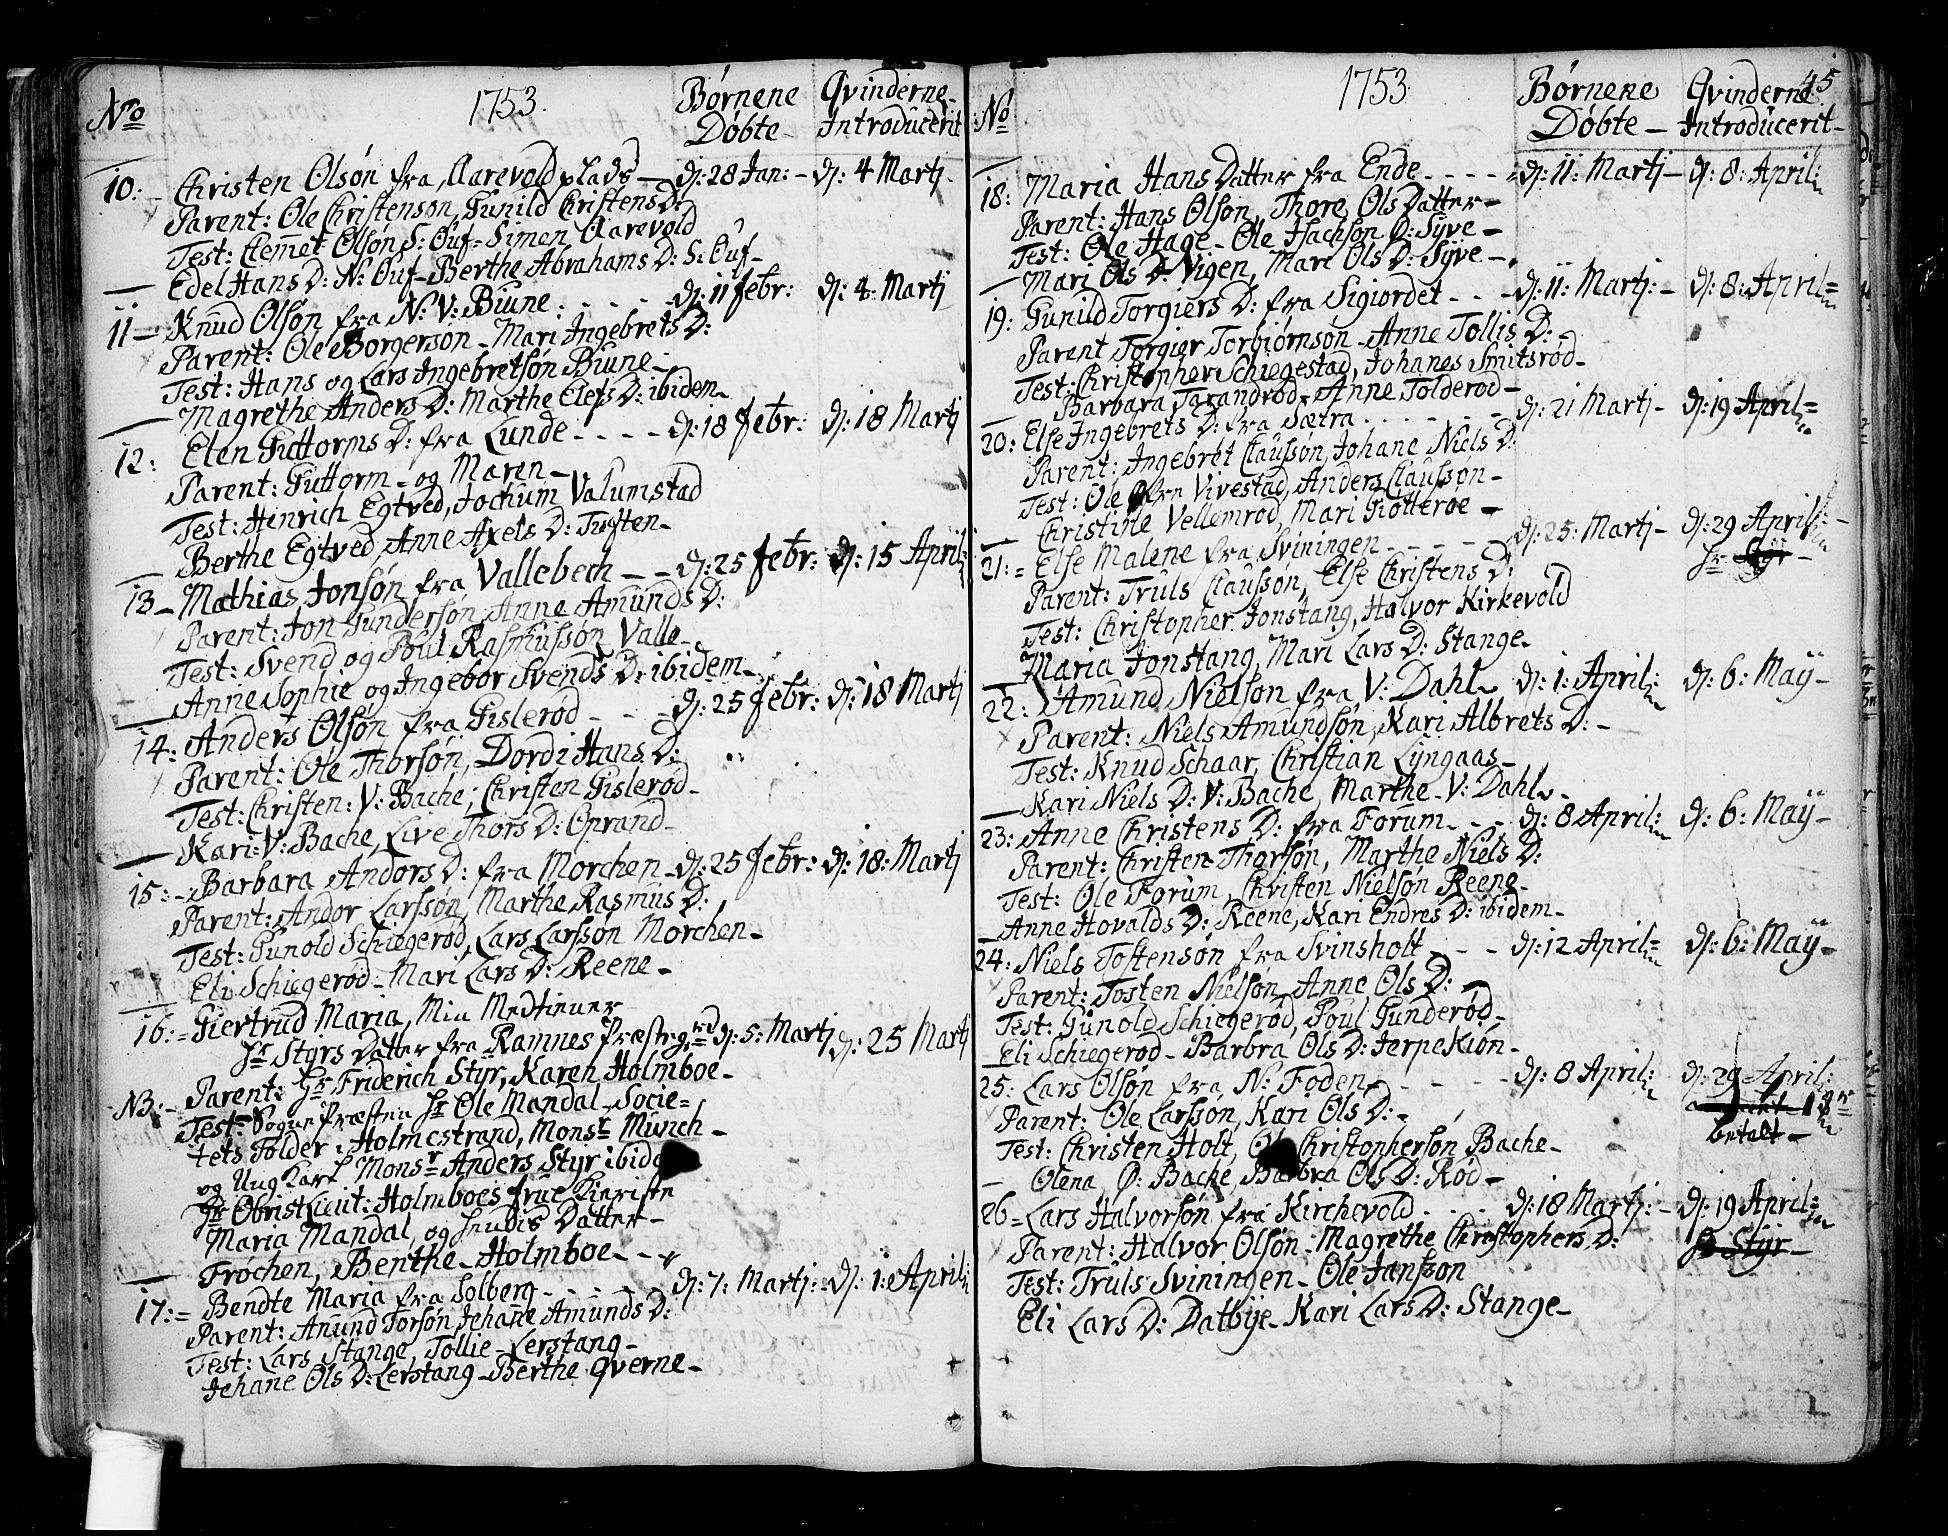 No 1753. Børnene Døbte Qvinderne Introducerit
10: Christen Olsøn fra Aarevold plads dj: 28 Jan: dj: 4 Martj
Parent: Ole Christenson, Gunild Christens D:
Test: Clemet Olsøn S: Ouf Simen Aarevold
Edel Hans D: N: Ouf Berthe Abrahams D: S: Ouf
11 Knud Olsøn fra N: V: Biune dj: 11 febr: dj: 4 Martj
Parent: Ole Borgersøn Mari Ingebrets D:
Test: Hans og Lars Ingebretsøn Biune
Magrethe Anders D: Marthe Elefs D: ibidem
12: Elen Guttorms D: fra Lunde dj: 18 febr: dj: 18 Martj
Parent: Guttorm og Maren
Test: Hinrich Egtved, Jochum Valumstad
Berthe Egtved, Anne Axels D: Tuften
13 Mathias Jonsøn fra Vallebech dj: 25 febr: dj: 15 April
Parent: Jon Gundersøn, Anne Amunds D:
Test: Svend og Poul Rasmussøn Valle
Anne Sophie og Ingebor Svends D: ibidem
14: Anders Olsøn fra Gislerød dj: 25 febr: dj: 18 Martj
Parent: Ole Thorsøn, Dordi Hans D:
Test: Christen: V: Bache; Christen Gislerød
Kari: V: Bache, Live Thors D: Oprand
15: Barbara Andors D: fra Morchen dj: 25 febr: dj: 18: Martj
Parent: Andor Larssøn, Marthe Rasmus D:
Test: Gunold Schiegerød, Lars Larssøn Morchen
Eli Schiegerød Mari Lars D: Reene
16: Giertrud Maria, Min Medtiener
Hr Styrs Datter fra Ramnes præstegrd dj: 5: Martj dj: 25 Martj
Parent: Hr Friderich Styr, Karen Holmboe
NB: Test: Sogne præsten Hr Ole Mandal, Socie=
tets Tolder i Holmestrand, Monsr Münch
og Ung Karl Monsr Anders Styr ibidem
Hr Obrist Lieut: Holmboes frue Kirstn
Maria Mandal, og hendis Datter
Frøchen, Benthe Holmboe
17: Bendte Maria fra Solberg dj: 7: Martj: dj: 1: April
Parent: Amund Torsøn, Jehane Amunds D:
Test: Lars Stange, Tollie Lerstang
Jehane Ols D: Lerstang Berthe Qverne
No 1753. Børnene Døbte Qvinderne Introducerit 45
18: Maria Hans Datter fra Ende dj: 11: Martj dj: 8: April:
Parent: Hans Olsøn, Thore Ols Datter
Test: Ole Hage Ole Isachsøn Ø: Syve
Mari Ols D: Vigen, Mari Ols D: Syve
19: Gunild Torgiers D: fra Sigiordet dj: 11: Martj: dj: 8: April
Parent Torgier Torbiørnsøn Anne Tollis D:
Test: Christopher Schiegestad, Johanes Smitsrød
Barbara Tarandrød Anne Tolderød
20: Else Ingebrets D: fra Sætra dj: 21 Martj dj: 19 April
Parent: Ingebret Claussøn, Johane Niels D:
Test: Ole fra Vivestad, Anders Claussøn
Christine Vellemrød, Mari Grotterøe
21: Else Malene fra Sviningen dj: 25: Martj dj: 29 April:
Hr Styr
Parent: Truls Claussøn, Else Christens D:
Test: Christopher Jonstang, Halvor Kirkevold
Maria Jonstang, Mari Lars D: Stange
22: Amund Nielsøn fra V: Dahl dj: 1: April: dj: 6: Maÿ
Parent: Niels Amundsøn, Kari Albrets D:
Test: Knud Schaar, Christian Lyngaas
Kari Niels D: V: Bache Marthe V: Dahl
23: Anne Christens D: fra Forum dj: 8 April: dj: 6: Maÿ
Parent: Christen Thorsøn, Marthe Niels D:
Test: Ole Forum, Christen Nielsøn Reene
Anne Hovalds D: Reene, Kari Endres D: ibidem
24: Niels Tostensøn fra Svinsholt dj: 12 April dj: 6: Maÿ
Parent: Tosten Nielsøn, Anne Ols D:
Test: Gunold Schiegerød, Poul Gunderød
Eli Schiegerød Barbra Ols D: Jerpekiøn
25: Lars Olsøn fra N: Foden dj: 8 April: dj: 29 April:
Parent: Ole Larssøn, Kari Ols D:
betalt
Test: Christen Holt, Ole Christophersøn Bache
Olena Ø: Bache, Barbra Ols D: Rød
26 Lars Halvorsøn fra Kirchevold dj: 18 Martj: dj: 19 April
Parent: Halvor Olsøn Magrethe Christophers D:
Hr Styr
Test: Truls Sviningen Ole Janssøn
Eli Lars D: Dalbye Kari Lars D: Stange